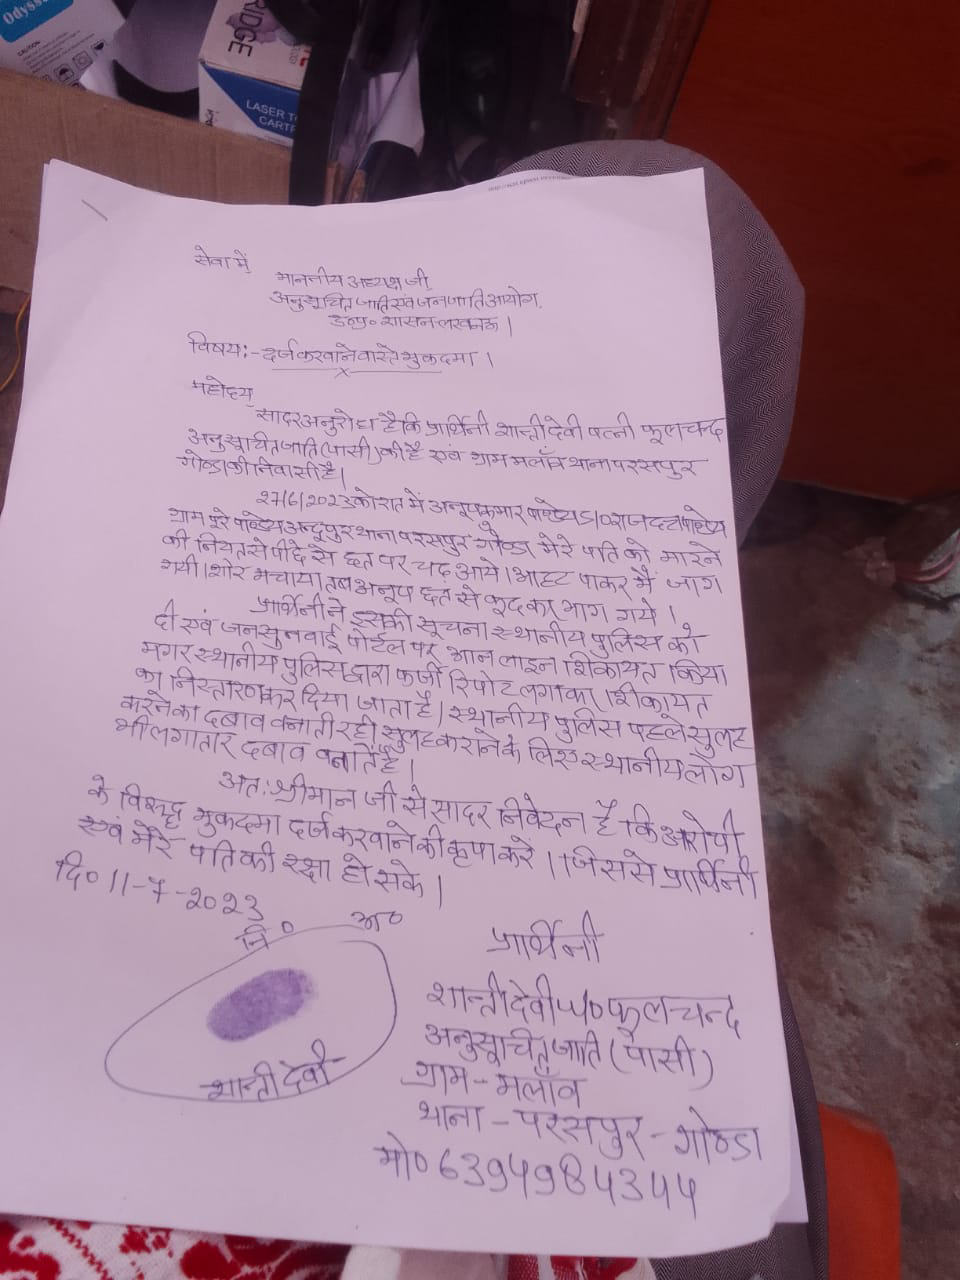 Odyss
CAUTION
RIDGE
LASER T
CARTR
सेवा में,
माननीय अध्यक्ष जी,
अनुसूचित जाति एवं जनजाति आयोग,
उ०प्र० शासन लखनऊ।
विषय:- दर्ज करवाने वास्ते मुकदमा।
x
महोदय,
सादर अनुरोध है कि प्रार्थिनी शान्ती देवी पत्नी फूलचन्द
अनुसूचित जाति (पासी) की है एवं ग्राम मलाँव थाना परसपुर
गोण्डा की निवासी है।
27/6/2023 को रात में अनूप कुमार पाण्डेय S/O राजदत्त पाण्डेय
ग्राम पूरे पाण्डेय अन्दूपुर थाना परसपुर गोण्डा मेरे पति को मारने
की नियत से पीछे से छत पर चढ़ आये। आहट पाकर मैं जाग
गयी। शोर मचाया तब अनूप छत से कूद कर भाग गये।
प्रार्थिनी ने इसकी सूचना स्थानीय पुलिस को
दी एवं जनसुनवाई पोर्टल पर आनलाइन शिकायत किया
मगर स्थानीय पुलिस द्वारा फर्जी रिपोर्ट लगाकर शिकायत
का निस्तारण कर दिया जाता है। स्थानीय पुलिस पहले सुलह
करने का दबाव बनाती रही सुलह कराने के लिए स्थानीय लोग
भी लगातार दबाव बनाते है।
अतः श्रीमान जी से सादर निवेदन है कि आरोपी
के विरूद्ध मुकदमा दर्ज करवाने की कृपा करें। जिससे प्रार्थिनी
एवं मेरे पति की रक्षा हो सके।
दि० 11-7-2023
नि० अ०
शान्ती देवी
प्रार्थिनी
शान्ती देवी W/O फूलचन्द
अनुसूचित जाति (पासी)
ग्राम - मलाँव
थाना - परसपुर - गोण्डा
मो० 6394984344